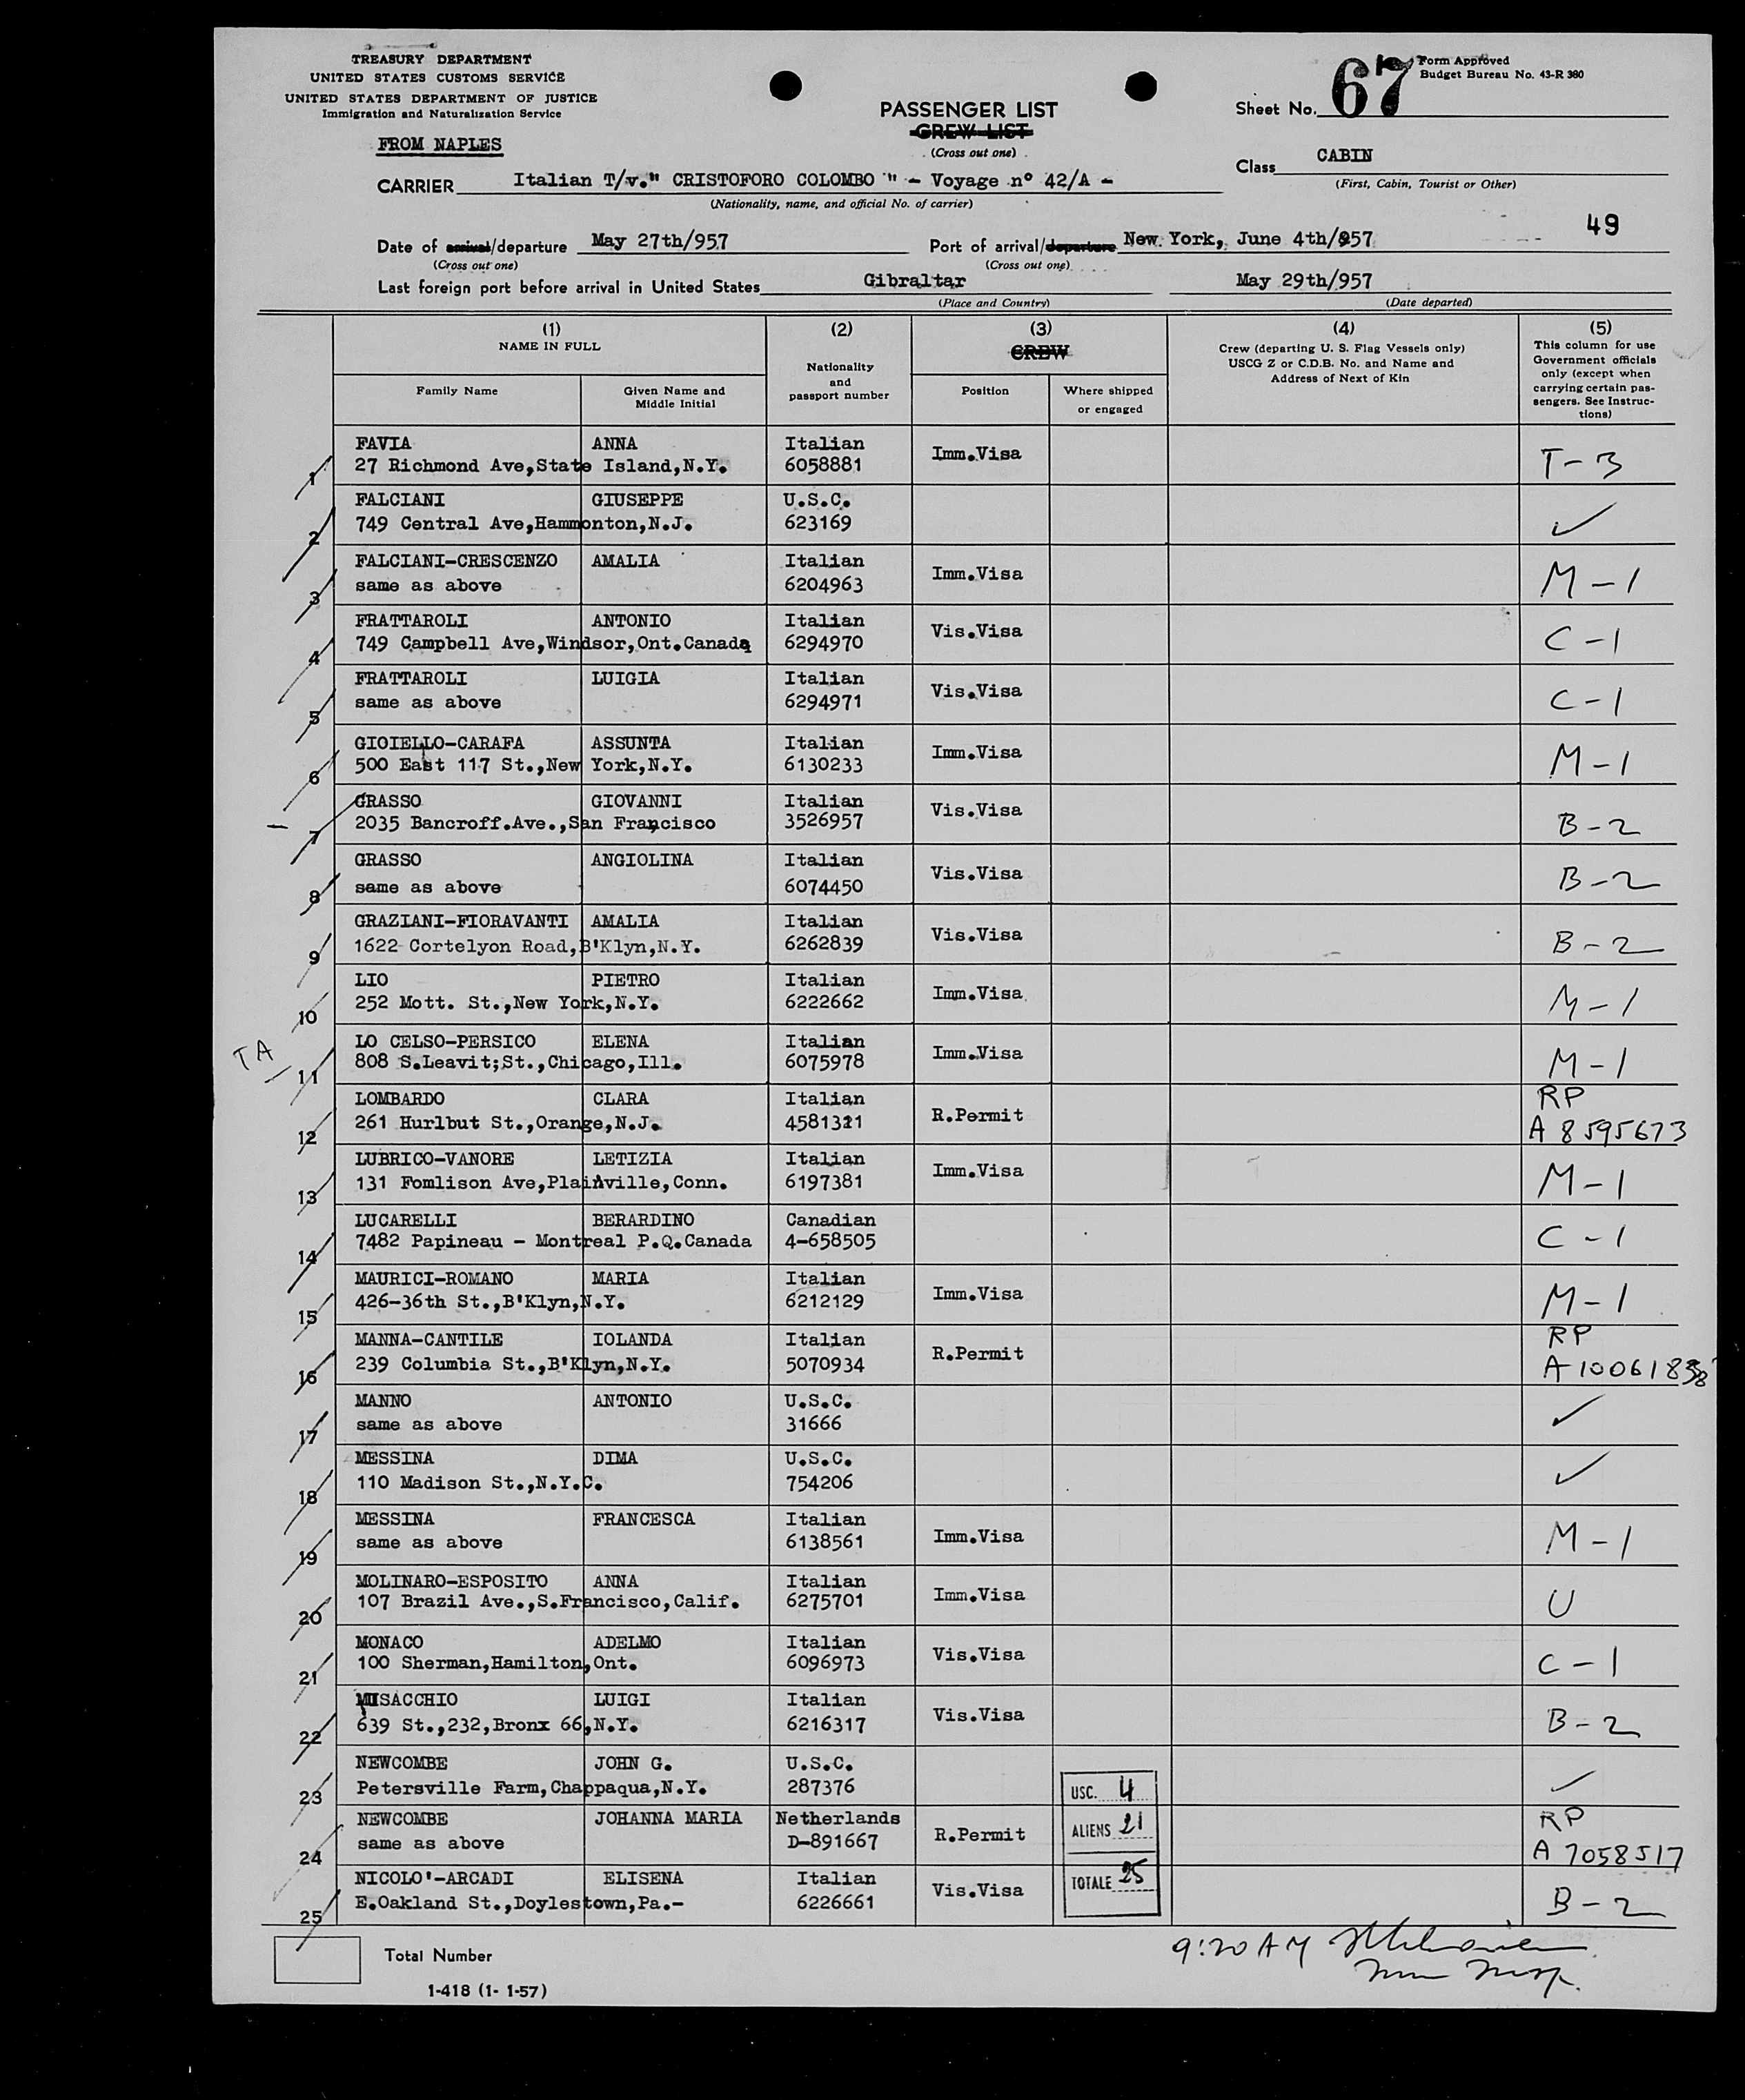 TREASURY DEPARTMENT
UNITED STATES CUSTOMS SERVICE
UNITED STATES DEPARTMENT OF JUSTICE
Immigration and Naturalization Service
FROM NAPLES
PASSENGER LIST
CREW LIST
(Cross out one)
Form Approved
Budget Bureau No. 43-R 380
Sheet No. 67
Class CABIN
(First, Cabin, Tourist or Other)
CARRIER Italian T/v." CRISTOFORO COLOMBO " - Voyage n° 42/A -
(Nationality, name, and official No. of carrier)
49
Date of arrival/departure May 27th/957 Port of arrival/departure New York, June 4th/957
(Cross out one) (Cross out one)
Last foreign port before arrival in United States Gibraltar May 29th/957
(Place and Country) (Date departed)
(1) (2) (3) (4) (5)
NAME IN FULL
Family Name
Given Name and
Middle Initial
Nationality
and
passport number
CREW
Position
Where shipped
or engaged
Crew (departing U. S. Flag Vessels only)
USCG Z or C.D.B. No. and Name and
Address of Next of Kin
This column for use
Government officials
only (except when
carrying certain pas-
sengers. See Instruc-
tions)
1 FAVIA ANNA Italian Imm.Visa T-3
27 Richmond Ave,State Island,N.Y. 6058881
2 FALCIANI GIUSEPPE U.S.C. ✓
749 Central Ave,Hammonton,N.J. 623169
3 FALCIANI-CRESCENZO AMALIA Italian Imm.Visa M-1
same as above 6204963
4 FRATTAROLI ANTONIO Italian Vis.Visa C-1
749 Campbell Ave,Windsor,Ont.Canada 6294970
5 FRATTAROLI LUIGIA Italian Vis.Visa C-1
same as above 6294971
6 GIOIELLO-CARAFA ASSUNTA Italian Imm.Visa M-1
500 East 117 St.,New York,N.Y. 6130233
7 GRASSO GIOVANNI Italian Vis.Visa B-2
2035 Bancroff.Ave.,San Francisco 3526957
8 GRASSO ANGIOLINA Italian Vis.Visa B-2
same as above 6074450
9 GRAZIANI-FIORAVANTI AMALIA Italian Vis.Visa B-2
1622 Cortelyon Road,B'Klyn,N.Y. 6262839
10 LIO PIETRO Italian Imm.Visa M-1
252 Mott. St.,New York,N.Y. 6222662
TA
11 LO CELSO-PERSICO ELENA Italian Imm.Visa M-1
808 S.Leavit;St.,Chicago,Ill. 6075978
12 LOMBARDO CLARA Italian R.Permit RP
261 Hurlbut St.,Orange,N.J. 4581321 A 8595673
13 LUBRICO-VANORE LETIZIA Italian Imm.Visa M-1
131 Fomlison Ave,Plainville,Conn. 6197381
14 LUCARELLI BERARDINO Canadian C-1
7482 Papineau - Montreal P.Q.Canada 4-658505
15 MAURICI-ROMANO MARIA Italian Imm.Visa M-1
426-36th St.,B'Klyn,N.Y. 6212129
16 MANNA-CANTILE IOLANDA Italian R.Permit RP
239 Columbia St.,B'Klyn,N.Y. 5070934
17 MANNO ANTONIO U.S.C. ✓
same as above 31666
18 MESSINA DIMA U.S.C. ✓
110 Madison St.,N.Y.C. 754206
19 MESSINA FRANCESCA Italian Imm.Visa M-1
same as above 6138561
20 MOLINARO-ESPOSITO ANNA Italian Imm.Visa U
107 Brazil Ave.,S.Francisco,Calif. 6275701
21 MONACO ADELMO Italian Vis.Visa C-1
100 Sherman,Hamilton,Ont. 6096973
22 MUSACCHIO LUIGI Italian Vis.Visa B-2
639 St.,232,Bronx 66,N.Y. 6216317
23 NEWCOMBE JOHN G. U.S.C. ✓
Petersville Farm,Chappaqua,N.Y. 287376
24 NEWCOMBE JOHANNA MARIA Netherlands R.Permit RP
same as above D-891667 A 7058517
25 NICOLO'-ARCADI ELISENA Italian Vis.Visa B-2
E.Oakland St.,Doylestown,Pa.- 6226661
USC. 4
ALIENS 21
TOTALE 25
Total Number
9:20 AM
I-418 (1- 1-57)